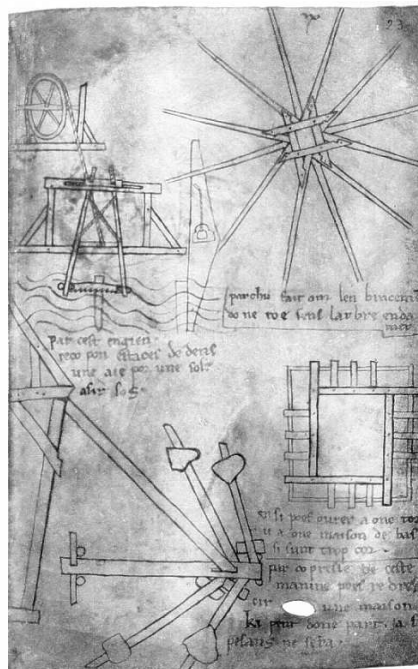 23
par chu fait om les braccons
do ne roe sens larbre enda
mer
Par cest engien
reco pon estaces de dens
une aie por une sole
asir sog.
ensi poes ovrer a one tor
u a one maison de bas
si sunt trop cor.
par ceste
maniere poes re dre
cir une maison
ki pent done part. ja si
pesans ne sera.